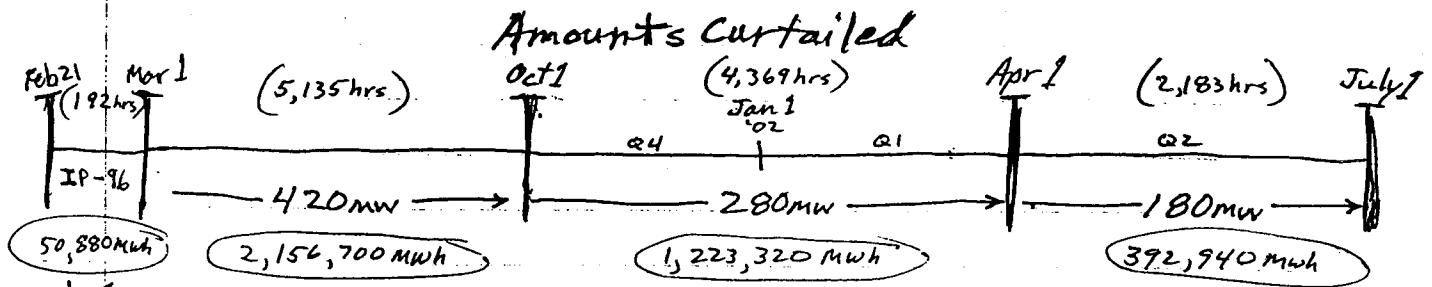 Amounts Curtailed
Feb 21 Mar 1 (5,135 hrs) Oct 1 (4,369 hrs) Apr 1 (2,183 hrs) July 1
(192 hrs) Jan 1
'02
Q4 Q1 Q2
IP-96
420 mw 280 mw 180 mw
50,880 mwh 2,156,700 mwh 1,223,320 mwh 392,940 mwh